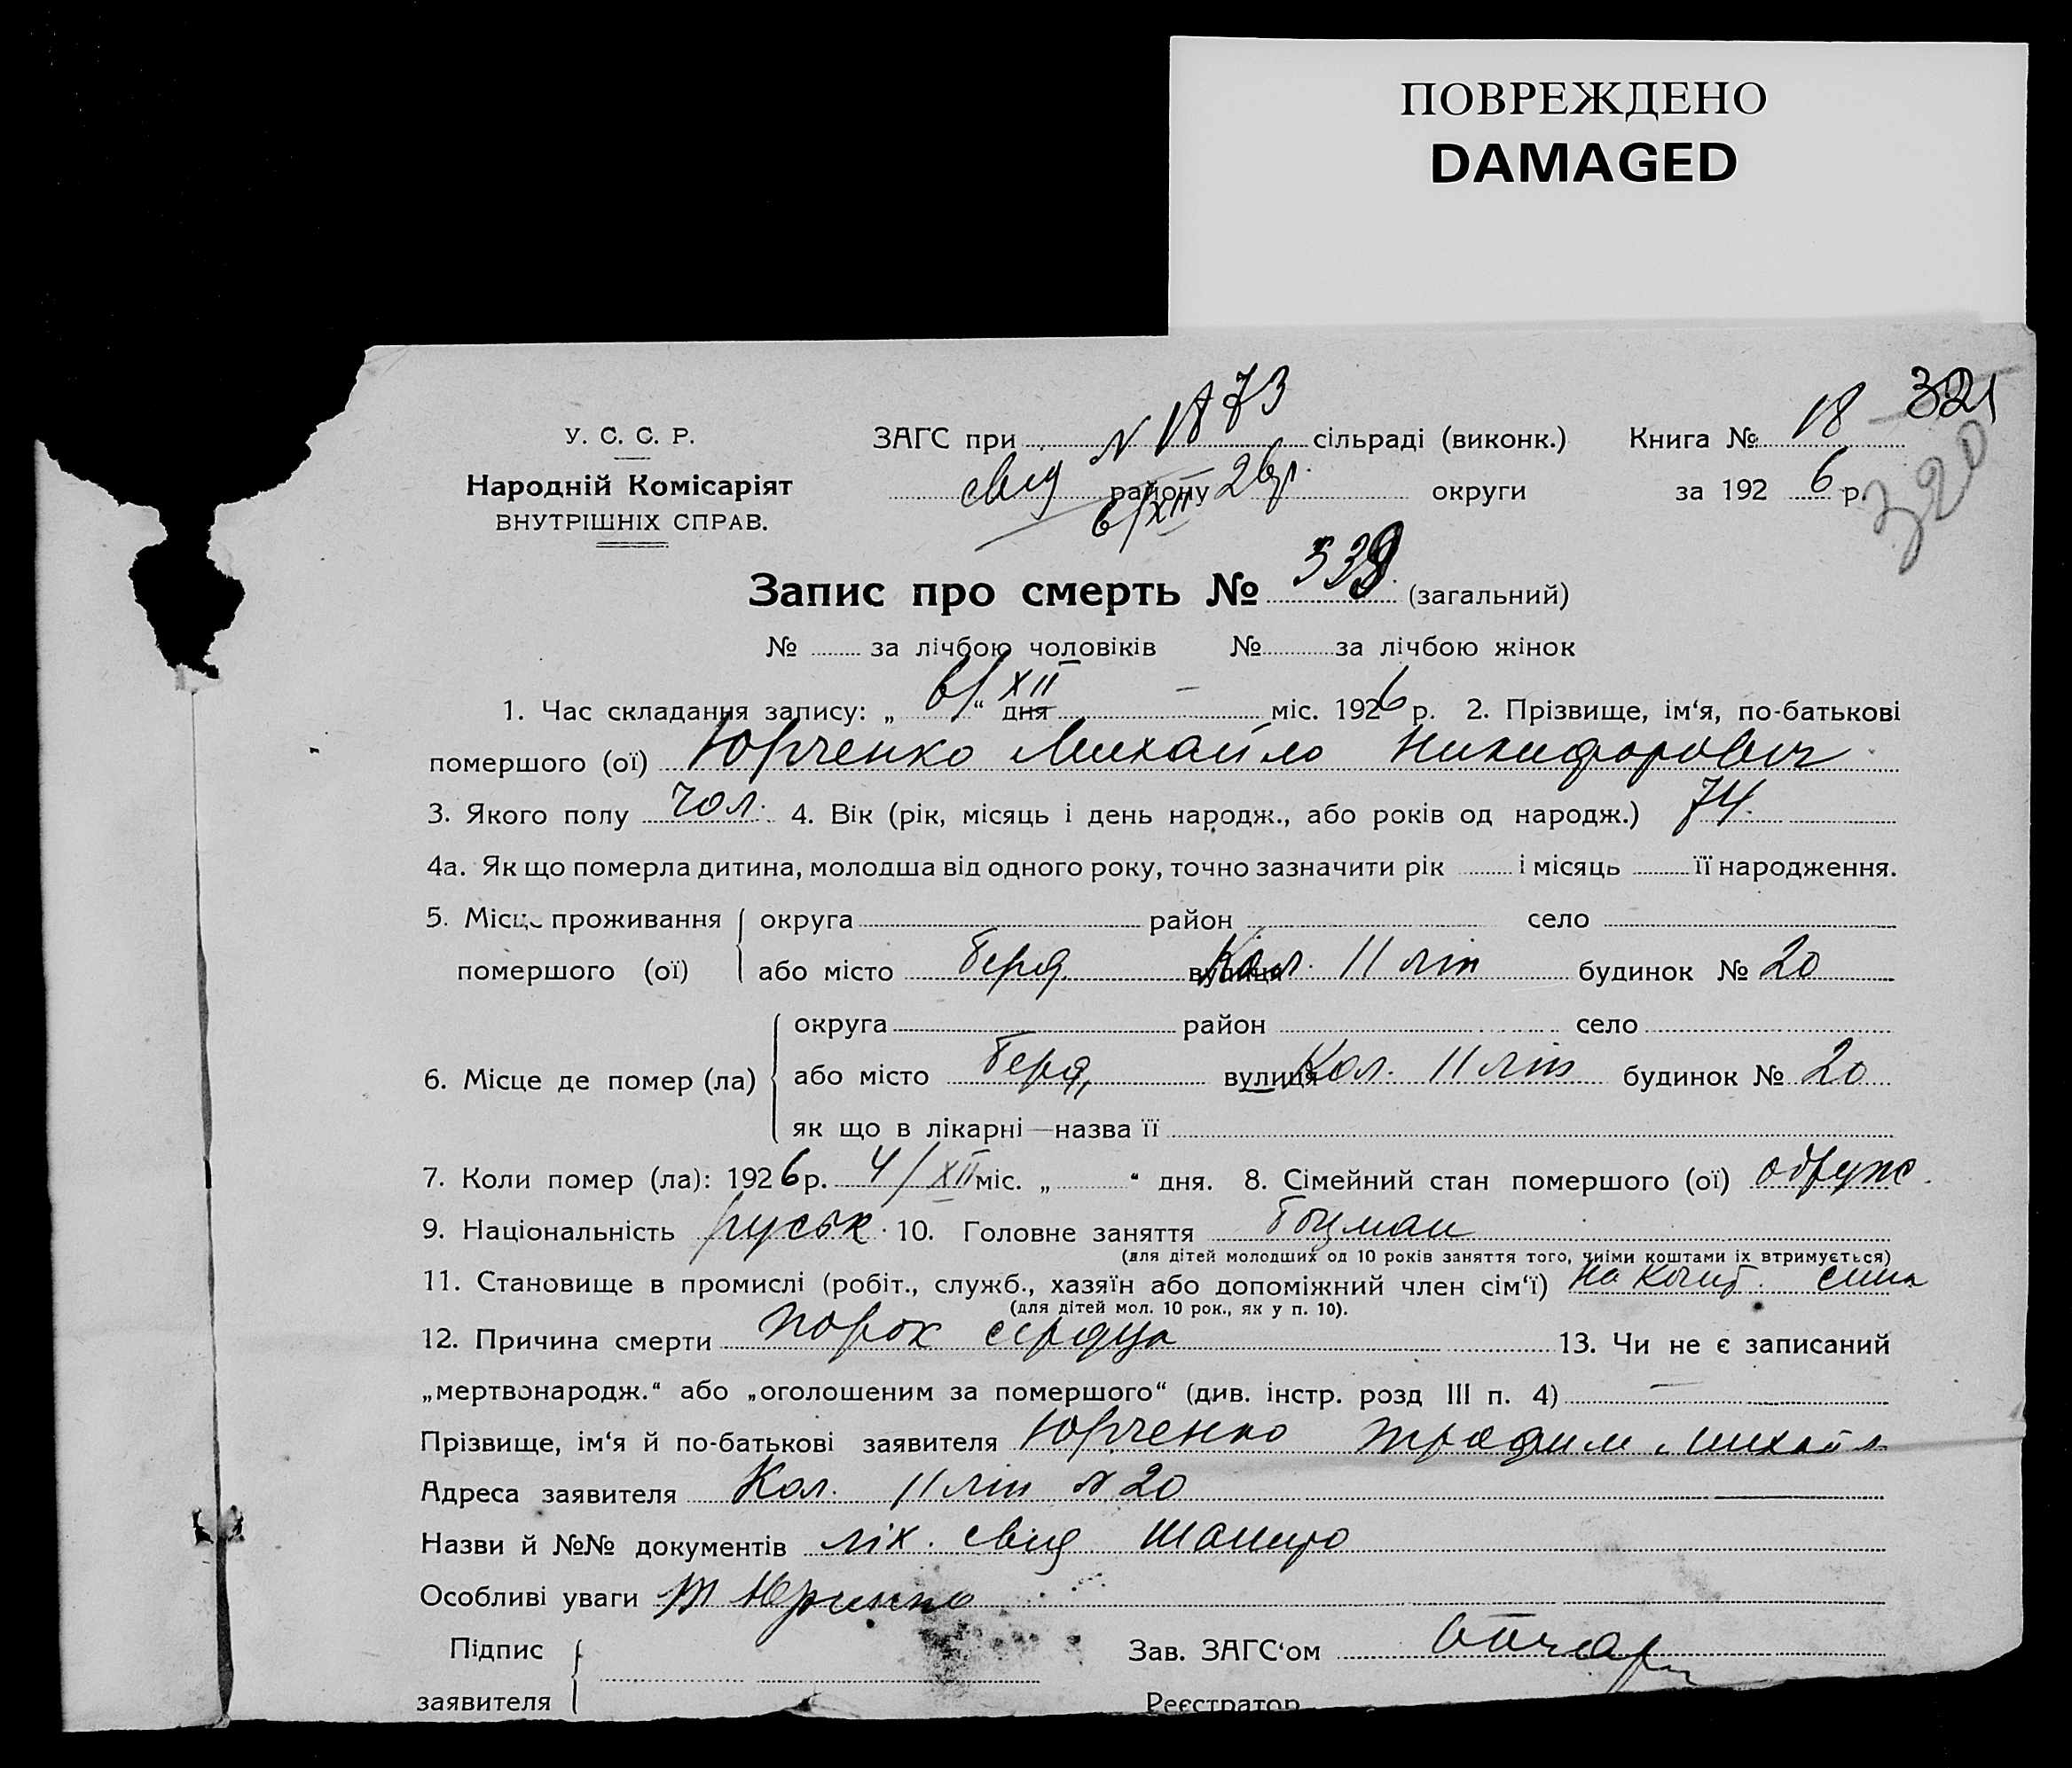 ПОВРЕЖДЕНО
DAMAGED
321
320
У. С. С. Р.
Народній Комісаріят
ВНУТРІШНІХ СПРАВ.
ЗАГС при N 1873 сільраді (виконк.) Книга № 18
свид району 26 р. округи за 192 6 р.
6/XII
Запис про смерть № 338 (загальний)
№ за лічбою чоловіків № за лічбою жінок
1. Час складання запису: „ 6/XII “ дня — міс. 1926 р. 2. Прізвище, ім‘я, по-батькові
помершого (ої) Юрченко Михайло Никифорович
3. Якого полу чол. 4. Вік (рік, місяць і день народж., або років од народж.) 74.
4а. Як що померла дитина, молодша від одного року, точно зазначити рік і місяць її народження.
5. Місце проживання округа район село
помершого (ої) або місто Берд. вулиця Кол. 11 літ будинок № 20
округа район село
6. Місце де помер (ла) або місто Берд, вулиця Кол. 11 літ будинок № 20
як що в лікарні—назва її
7. Коли помер (ла): 1926 р. 4/XII міс. „ “ дня. 8. Сімейний стан помершого (ої) одруж.
9. Національність руськ. 10. Головне заняття
(для дітей молодших од 10 років заняття того, чиїми коштами їх втримується)
11. Становище в промислі (робіт., служб., хазяїн або допоміжний член сім‘ї) на кошт. сина
(для дітей мол. 10 рок., як у п. 10).
12. Причина смерти порок сердця 13. Чи не є записаний
„мертвонародж.“ або „оголошеним за помершого“ (див. інстр. розд III п. 4) —
Прізвище, ім‘я й по-батькові заявителя Юрченко Трофим Михайл
Адреса заявителя Кол. 11 літ № 20
Назви й №№ документів лік. свид Шапиро
Особливі уваги Т Юрченко
Підпис Зав. ЗАГС‘ом
заявителя Реєстратор